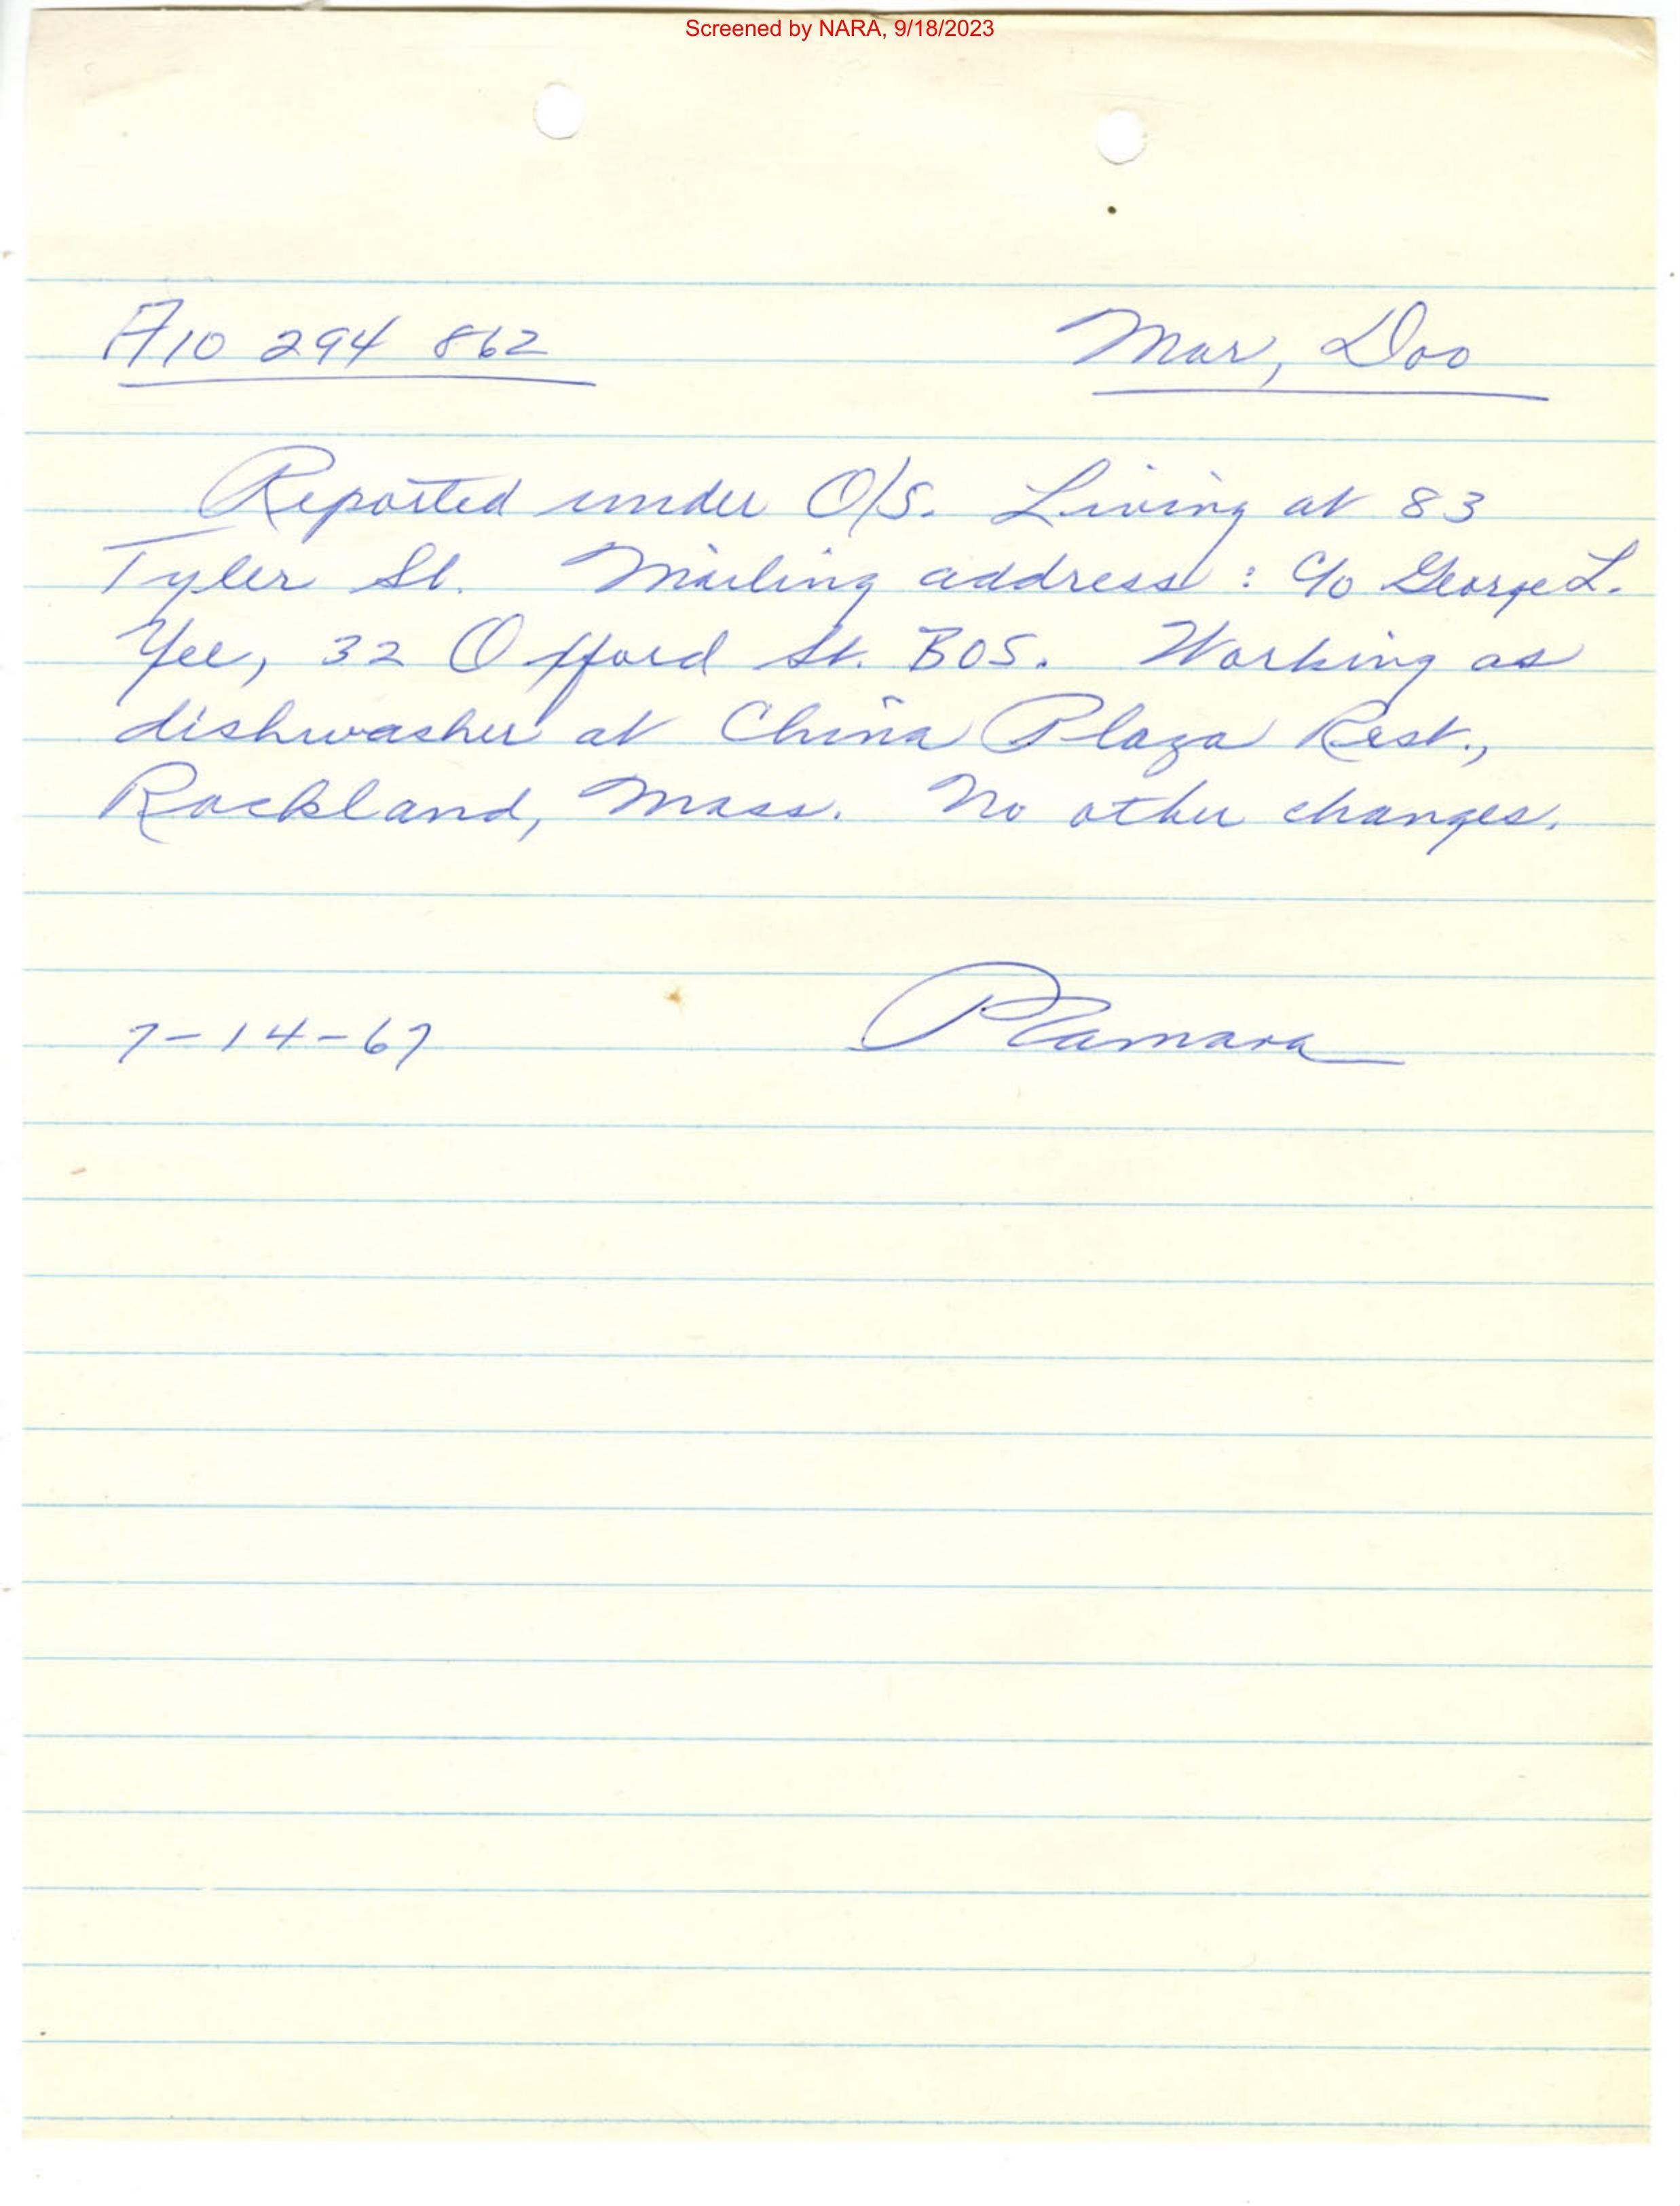 Screened by NARA, 9/18/2023
A10 294 862 Mar, Doo
Reported under O/S. Living at 83
Tyler St. Mailing address: c/o George L.
Yee, 32 Oxford St. BOS. Working as
dishwasher at China Plaza Rest.,
Rockland, Mass. No other changes.
7-14-67